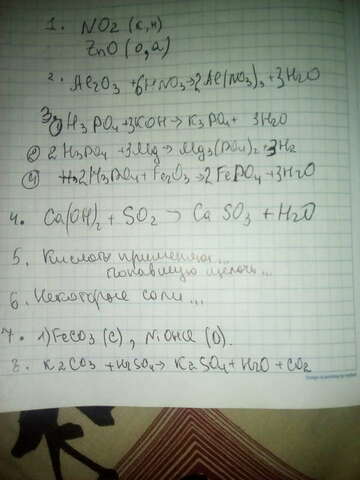 1. NO2 (к,н)
ZnO (о,а)
2. Al2O3 + 6HNO3 → 2Al(NO3)3 + 3H2O
3. 1) H3PO4 + 3KOH → K3PO4 + 3H2O
2) 2H3PO4 + 3Mg → Mg3(PO4)2 + 3H2
4) 2H3PO4 + Fe2O3 → 2FePO4 + 3H2O
4. Ca(OH)2 + SO2 → CaSO3 + H2O
5. Кислоты применяют...
попавшую щелочь...
6. Некоторые соли...
7. 1) FeCO3 (С), NiOHCl (О).
8. K2CO3 + H2SO4 → K2SO4 + H2O + CO2